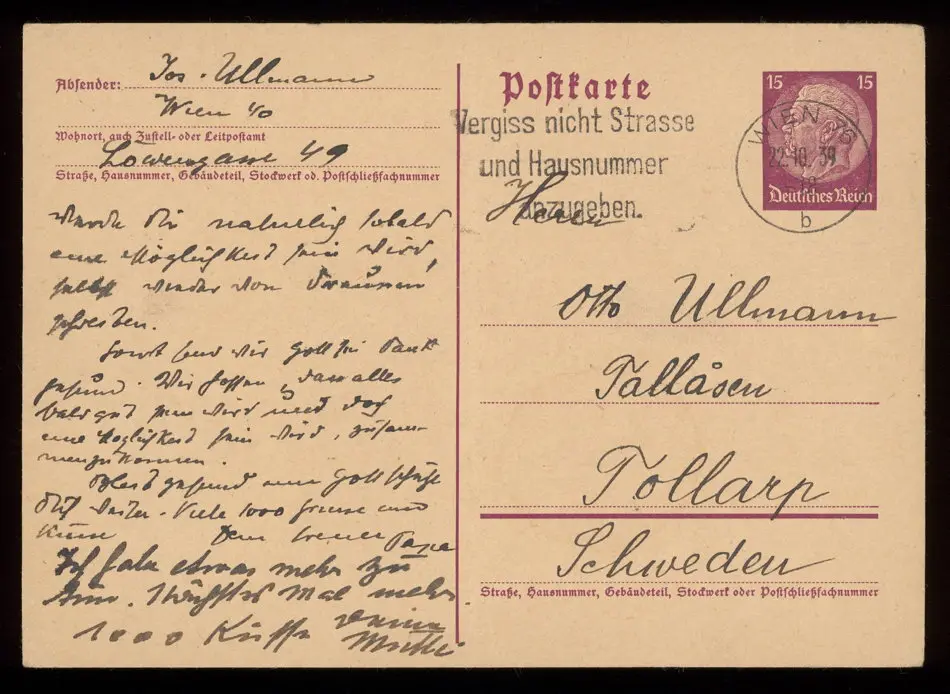 Absender: Jos. Ullmann
Wien 40
Wohnort, auch Zustell- oder Leitpostamt
Löwengasse 49
Straße, Hausnummer, Gebäudeteil, Stockwerk od. Postschließfachnummer
werde Dir natürlich sobald
eine Möglichkeit sein wird,
selbst wieder von draussen
schreiben.
Sonst sind wir Gott sei Dank
gesund. Wir hoffen, dass alles
bald gut sein wird und doch
eine Möglichkeit sein wird, zusam-
menzukommen.
Bleib gesund und Gott schütze
Dich weiter. Viele 1000 Grüsse und
Küsse Dein treuer Papa
Ich habe etwas mehr zu
tun. Nächstes Mal mehr.
1000 Küsse Deine
Mutti
Postkarte
Vergiss nicht Strasse
und Hausnummer
anzugeben.
15 15
Deutsches Reich
WIEN 75
22.10.39
b
Herrn
Otto Ullmann
Tallåsen
Tollarp
Schweden
Straße, Hausnummer, Gebäudeteil, Stockwerk oder Postschließfachnummer